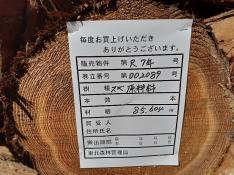 毎度お買上げいただき
ありがとうございます。
販売物件 第 R.74 号
巻立番号 第 002089 号
樹種 スギ 原料材
本数 本
材積 85.604 m³
買受人
住所氏名
搬出期間
東北森林管理局